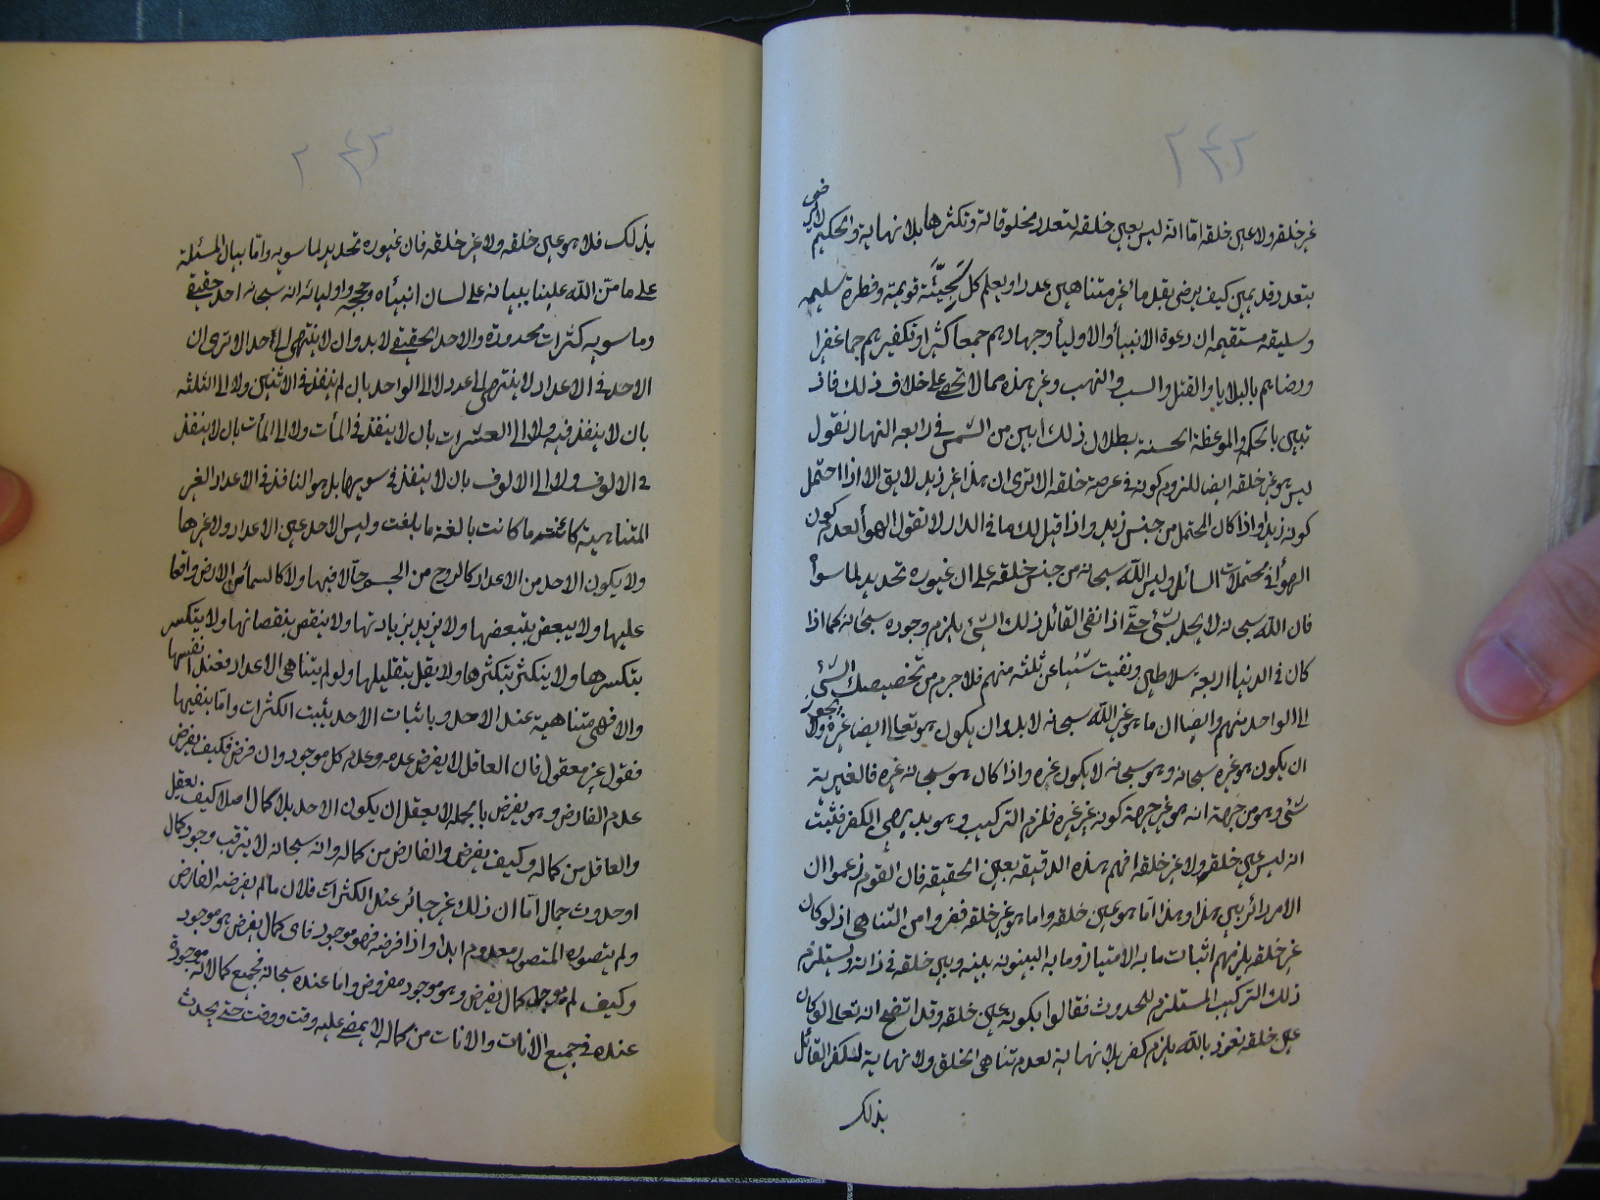 ٢٤٢
غير خلقه ولا عين خلقه اما انه ليس بعين خلقه لتعدد مخلوقاته وتكثرها بلا نهاية والحكيم لا يرضى
بتعدد قديمين كيف يرضى بقدماء غير متناهين عددا ويعلم كل سجيّة قويمة وفطرة سليمه
وسليقه مستقيمه ان دعوة الانبيأ والاوليأ وجهادهم جمعا كثيرا وتكفيرهم جما غفيرا
ورضاهم بالبلايا والقتل والسب والنهب وغير هذه مما لا تحصى على خلاف ذلك فاذ
تبين بالحكمة والموعظة الحسنة بطلان ذلك ابين من الشمس في رابعه النهار نقول
ليس هو غير خلقه ايضا للزوم كونه في عرصة خلقه الا ترى ان هذا غير زيد لا يق الا اذا احتمل
كونه زيد واذا كان المحتمل من جنس زيد واذا قيل لك ما في الدار لا تقول الهوأ لعدم كون
الهوأ في محتملات السائل وليس الله سبحانه من جنس خلقه على ان غيوره تحديد لما سواه
فان الله سبحانه لا يحد بشئ حتى اذا نفى القائل ذلك الشئ يلزم وجوده سبحانه كما اذا
كان في الدنيا اربعة سلاطين ونفيت شيئا عن ثلثه منهم فلا جرم من تخصيصك الشئ
الى الواحد منهم وايضا ان ما هو غير الله سبحانه لا بد وان يكون هو تعالى ايضا غيره ولا يجوز
ان يكون هو غيره سبحانه وهو سبحانه لا يكون غيره واذا كان هو سبحانه غيره فالغيرية
شئ وهو من جهة انه هو غير جهة كونه غير غيره فلزم التركيب وهو بديهي الكفر فثبت
انه ليس عين خلقه ولا غير خلقه افهم هذه الدقيقه بعين الحقيقه فان القوم زعموا ان
الامر دائر بين هذا وهذا اما هو عين خلقه واما هو غير خلقه ففروا من التناهي اذ لو كان
غير خلقه يلزمهم اثبات ما به الامتياز وما به البينونه بينه وبين خلقه في ذاته ويستلزم
ذلك التركيب المستلزم للحدوث فقالوا بكونه عين خلقه وقد اتضح انه تعالى لو كان
عين خلقه نعوذ بالله يلزم كفر بلا نهاية لعدم تناهي الخلق ولا نهاية لكفر القائل
بذلك
٢٤٣
بذلك فلا هو عين خلقه ولا غير خلقه فان غيوره تحديد لما سويه واما بيان المسئلة
على ما منّ الله علينا ببيانه على لسان انبيائه وحججه واوليائه انه سبحانه احد حقيقي
وما سويه كثرات محدودة والاحد الحقيقي لا بد وان لا ينتهي الى احد الا ترى ان
الاحد في الاعداد لا ينتهي الى عدد لا الى الواحد بان لم ينفذ في الاثنين ولا الى الثلثه
بان لا ينفذ فيه ولا الى العشرات بان لا ينفذ في المأت ولا الى المأت بان لا ينفذ
في الالوف ولا الى الالوف بان لا ينفذ في سويها بل هو النافذ في الاعداد الغير
المتناهية كائنة ما كانت بالغة ما بلغت وليس الاحد عين الاعداد ولا غيرها
ولا يكون الاحد من الاعداد كالروح من الجسم حالا فيها ولا كالسمأ من الارض واقعا
عليها ولا يبعض بتبعضها ولا يزيد بزيادتها ولا ينقص بنقصانها ولا يتكسر
بتكسرها ولا يتكثر بتكثرها ولا يقل بتقليلها ولو لم يتناهى الاعداد فعند انفسها
والا فهي متناهية عند الاحد وباثبات الاحد يثبت الكثرات واما بنفيها
فقول غير معقول فان العاقل لا يفرض عدمه وعدم كل موجود وان فرض فكيف يفرض
عدم الفارض وهو يفرض بالجمله لا يعقل ان يكون الاحد بلا كمال اصلا كيف يعقل
والعاقل من كماله وكيف يفرض والفارض من كماله وانه سبحانه لا يترقب وجود كمال
او حدوث جمال اما ان ذلك غير جائز عند الكثرات فلان ما لم يفرضه الفارض
ولم يتصوره المتصور معدوم ابدا واذا فرضه فهو موجود فاى كمال يفرض هو موجود
وكيف لم يوجد كمال يفرض وهو موجود مفروض واما عنده سبحانه فجميع كمالاته موجودة
عنده في جميع الانات والانات من كماله لا يمضى عليه وقت ووقت حتى يحدث